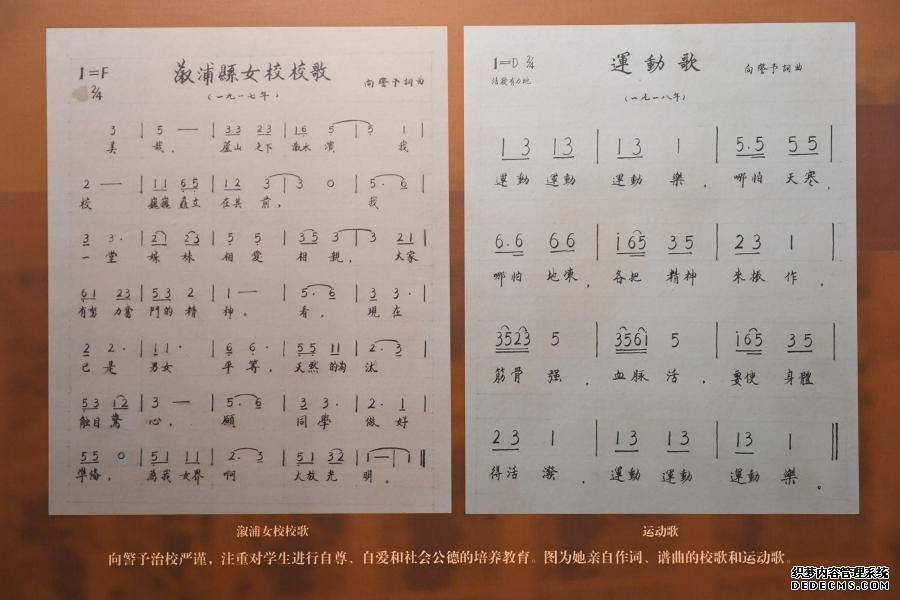 1=F
2/4
溆浦縣女校校歌
(一九一七年)
向警予詞曲
3 | 5 — | 33 23 | 16 5 | 5 1 |
美 哉, 廬山 之下 溆水 濱 我
2 — | 11 65 | 12 3 | 3 0 | 5· 6 |
校 巍巍 矗立 在其 前, 我
3 3· | 21 23 | 5 5 | 35 3 | 3 21 |
一 堂 姊 妹 相 愛 相 親, 大家
61 23 | 53 2 | 1 — | 5· 6 | 3 3· |
有努 力奮 鬥的 精 神。 看, 現 在
2 2· | 11· | 6 6· | 55 11 | 2· 3 |
已 是 男女 平 等, 天然 的 淘 汰
53 12 | 3 — | 5· 6 | 3 3· | 2· 1 |
觸目 驚 心, 願 同 學 做 好
55 0 | 51 11 | 2· 3 | 51 32 | 1 — | 1 ‖
準俻, 為我 女界 啊 大放 光 明。
1=D 2/4
活潑有力地
運動歌
向警予詞曲
(一九一八年)
13 13 | 13 1 | 5·5 55 |
運動 運動 運動 樂, 哪怕 天寒,
6·6 66 | i65 35 | 23 1 |
哪怕 地凍, 各把 精神 來振 作,
3523 5 | 3561 5 | i65 35 |
筋骨 強, 血脉 活, 要使 身體
23 1 | 13 13 | 13 1 ‖
得活 潑, 運動 運動 運動 樂。
溆浦女校校歌
运动歌
向警予治校严谨，注重对学生进行自尊、自爱和社会公德的培养教育。图为她亲自作词、谱曲的校歌和运动歌。
织梦内容管理系统
DEDECMS.COM